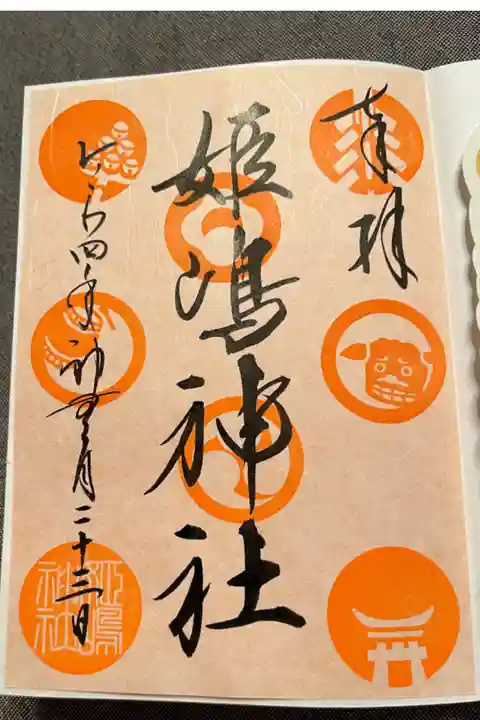 奉拝
姫嶋神社
令和四年神無月二十三日
姫嶋
神社